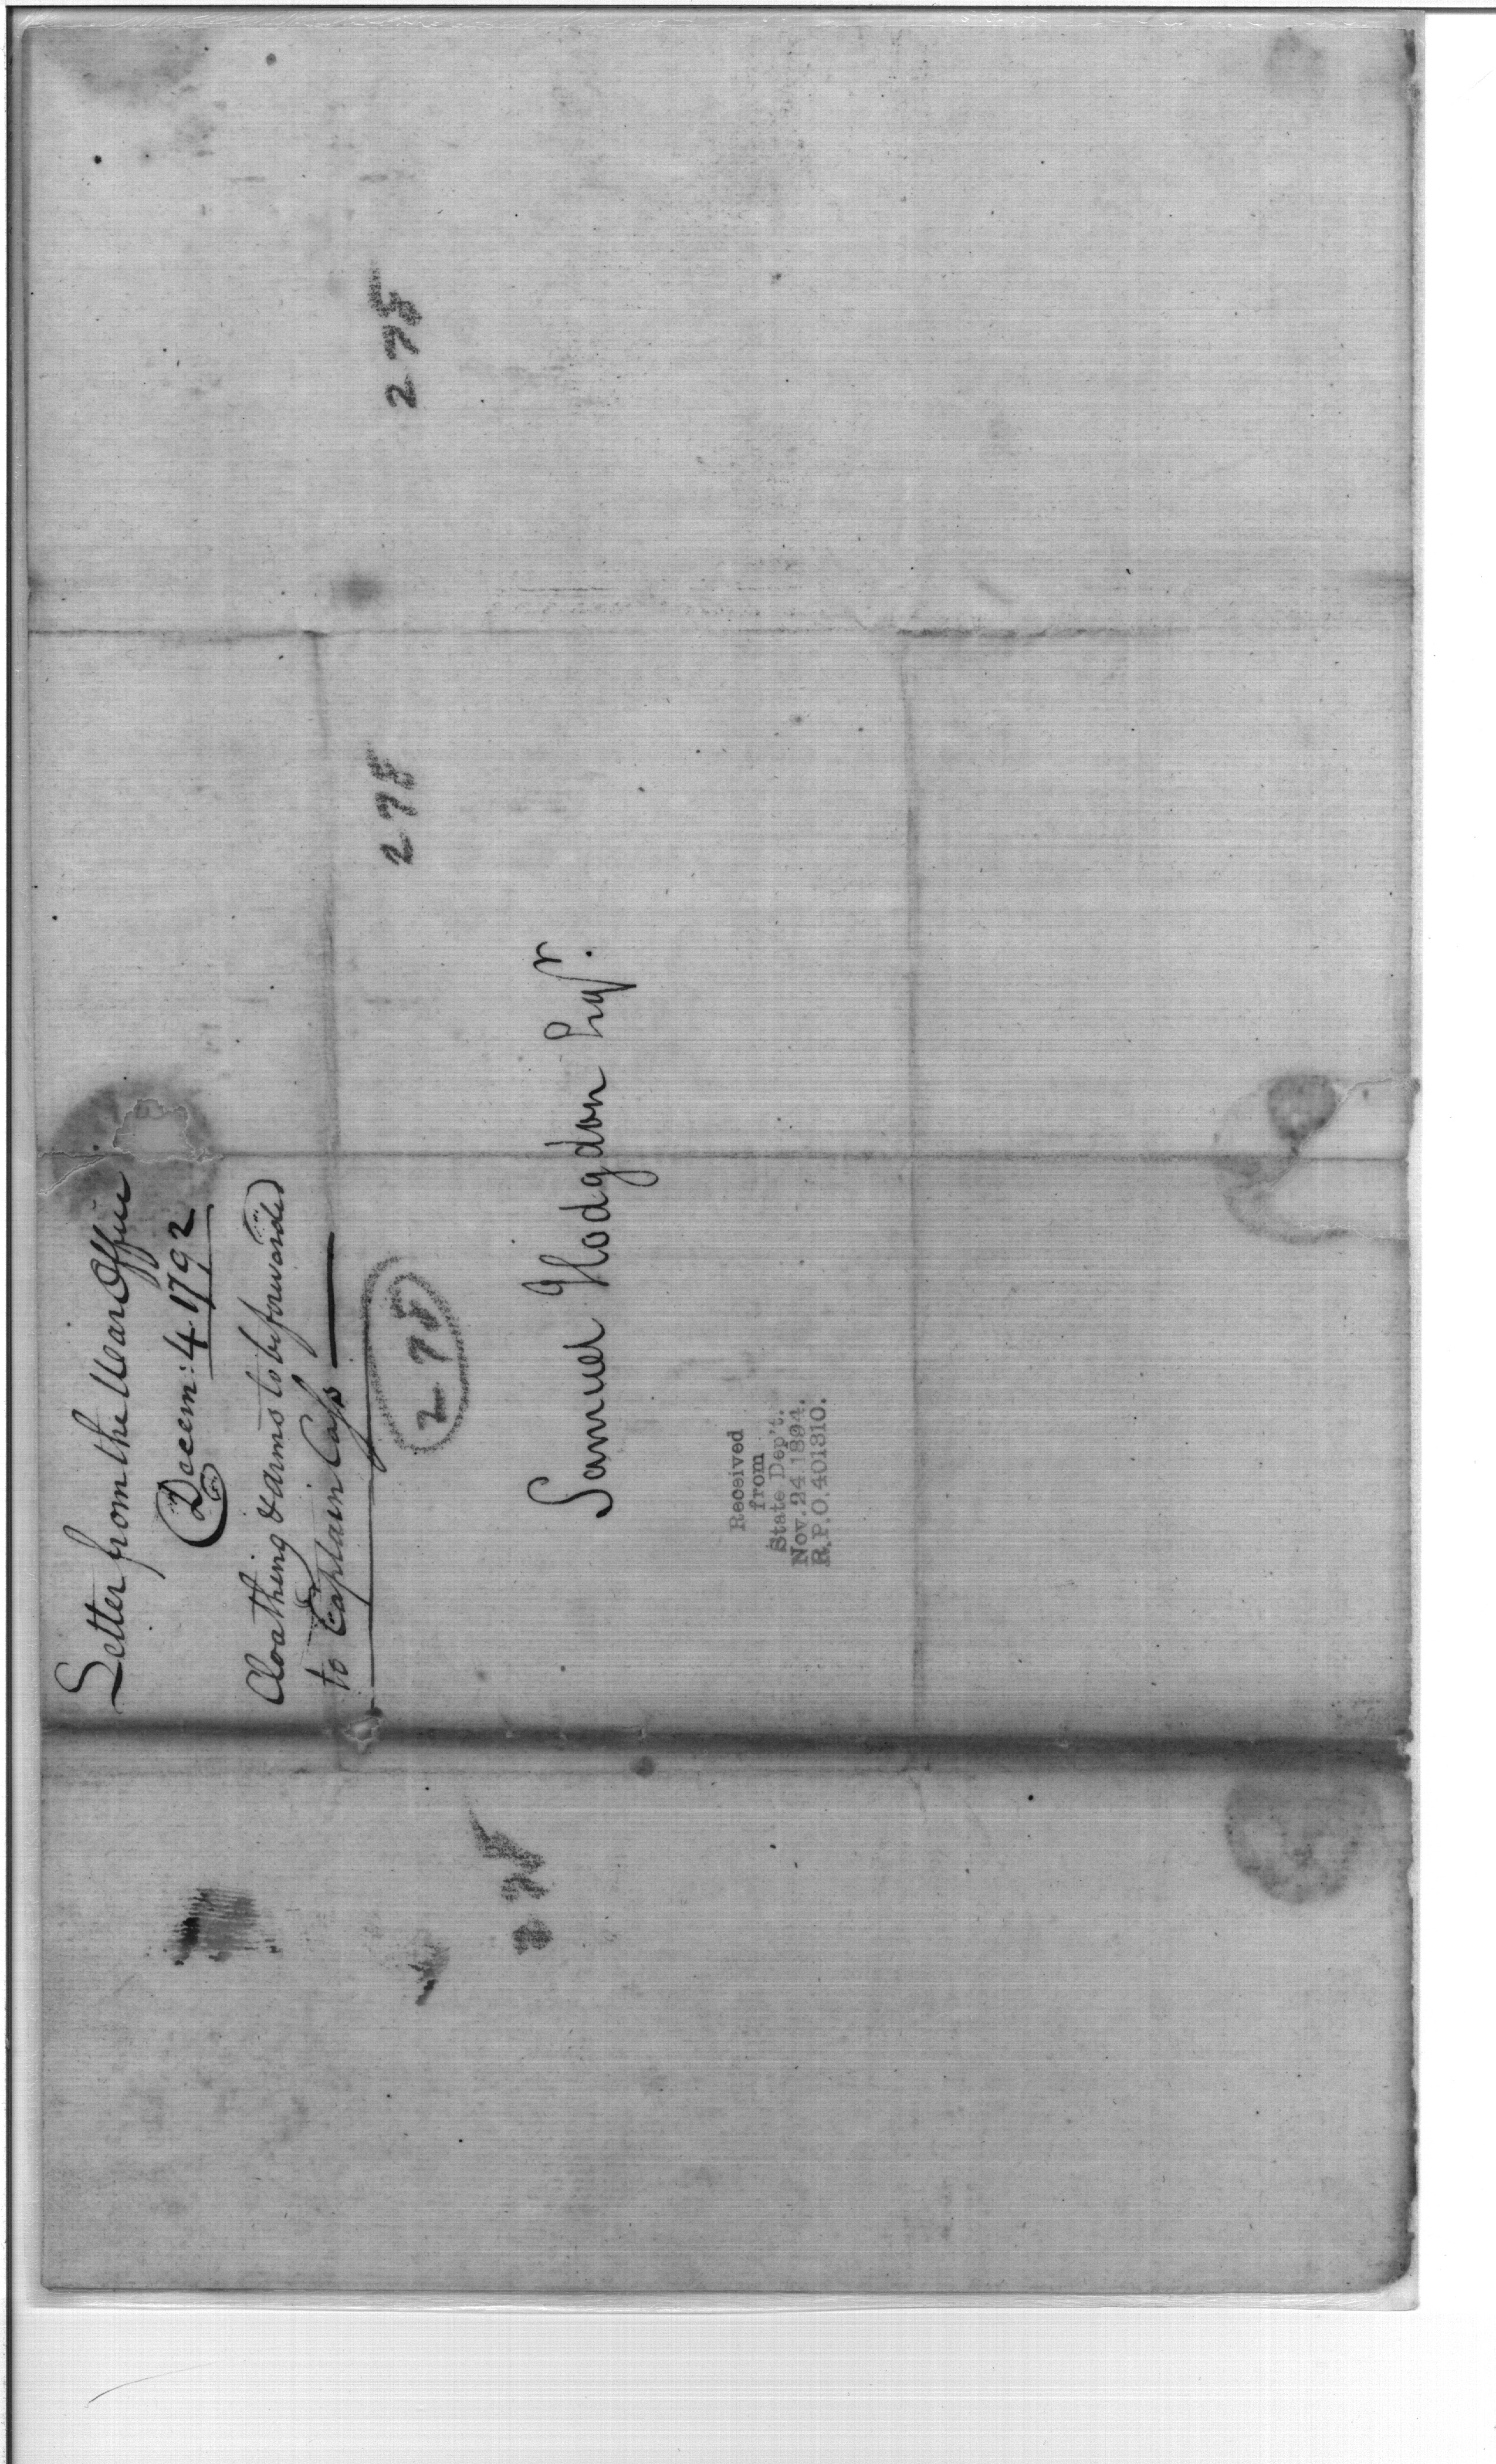 Letter from the War Office
Decem: 4. 1792
Cloathing & arms to be forwarded
to Captain Cass
278
278
278
Samuel Hodgdon Esqr.
Received
from
State Dep't.
Nov. 24. 1894.
R.P.O. 401310.
278